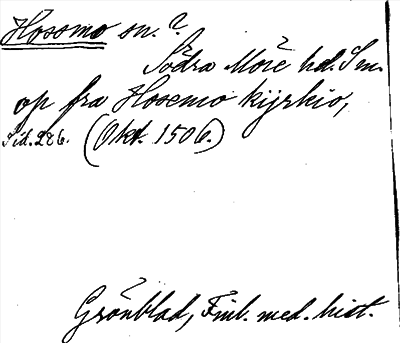 Hossmo sn.?
Södra Möre hd. Sm.
op fra Hosemo kyrkio,
Sid. 286. (Okt. 1506.)
Grönblad, Finl. med. hist.